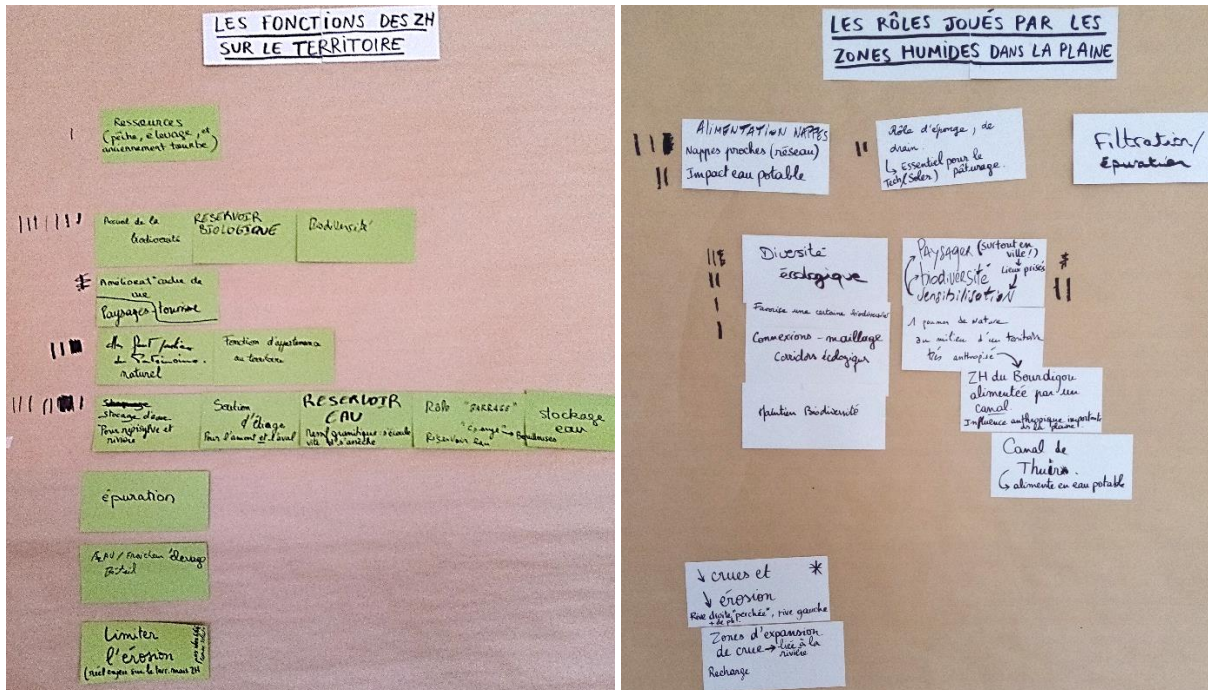 LES FONCTIONS DES ZH
SUR LE TERRITOIRE
Ressources
(pêche, élevage, et
anciennement tourbe)
Accueil de la
biodiversité
RESERVOIR
BIOLOGIQUE
Biodiversité
cadre de
vie
Paysages tourisme
naturel
Fonction d'appartenance
au territoire
Stockage d'eau
Pour ripisylve et
rivière
Soutien
d'étiage
Pour l'amont et l'aval
RESERVOIR
EAU
granitique s'écoule
vite et s'assèche
Rôle "BARRAGE"
"éponge"
Réservoir eau
stockage
eau
épuration
EAU / Fraicheur élevage
Limiter
l'érosion
(réel enjeu sur le terr. mais ZH
LES RÔLES JOUÉS PAR LES
ZONES HUMIDES DANS LA PLAINE
ALIMENTATION NAPPES
Nappes proches (réseau)
Impact eau potable
Rôle d'éponge, de
drain.
↳ Essentiel pour le
Tech (Soler) pâturage.
Filtration/
épuration
Diversité
écologique
Favorise une certaine biodiversité
Connexions - maillage
Corridors écologiques
Maintien Biodiversité
PAYSAGER (surtout en
ville!)
↓ Lieux prisés
biodiversité
sensibilisation
1 poumon de Nature
au milieu d'un territoire
très anthropisé
ZH du Bourdigou
alimentée par un
canal.
Influence anthropique importante
ds la plaine
Canal de
Thuir
↳ alimente en eau potable
↓ crues et *
↓ érosion
Rive droite "perchée", rive gauche
+ de pb.
Zones d'expansion
de crue → liée à la
rivière
Recharge